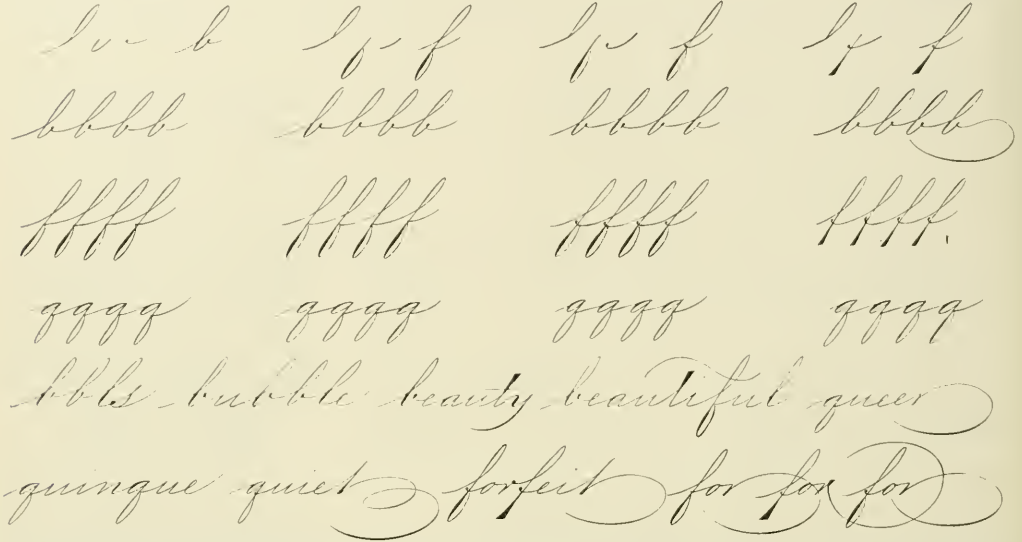 b f f f
bbbb bbbb bbbb bbbb
ffff ffff ffff ffff
qqqq qqqq qqqq qqqq
bbls bubble beauty beautiful queer
quinque quiet forfeit for for for